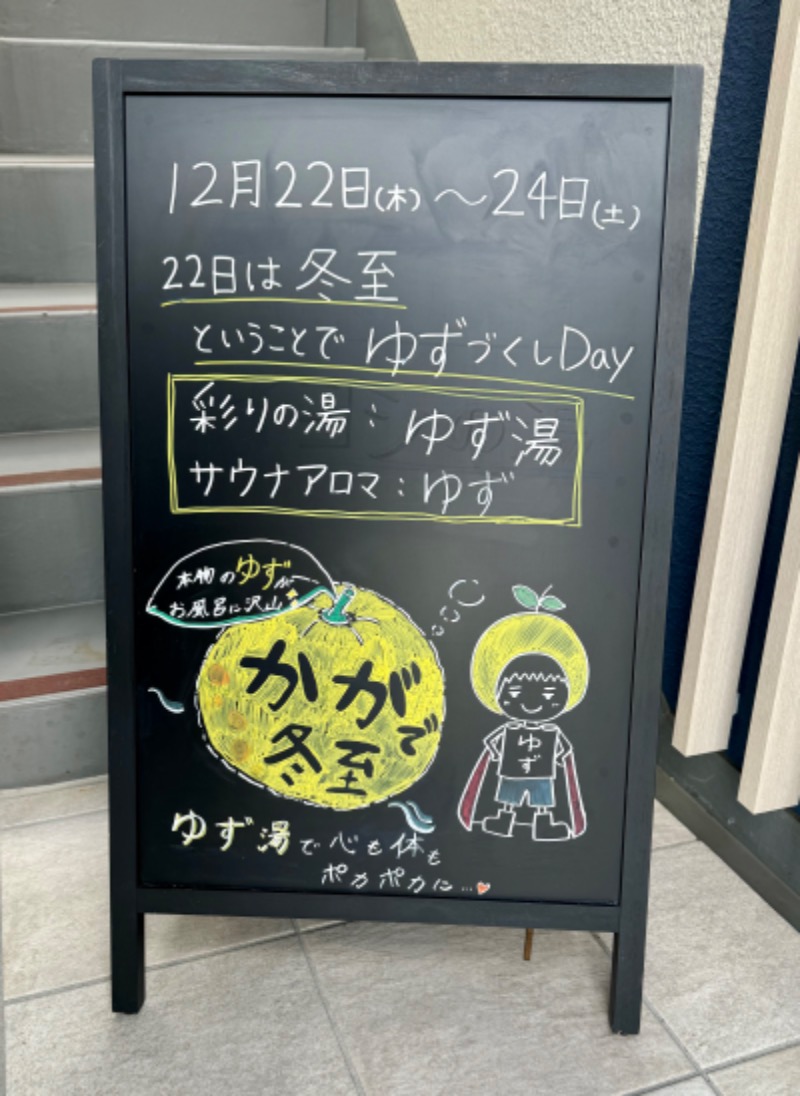 12月22日(木)～24日(土)
22日は冬至
ということで ゆずづくしDay
彩りの湯：ゆず湯
サウナアロマ：ゆず
本物のゆずが
お風呂に沢山
かがで
冬至
ゆず
ゆず湯で心も体も
ポカポカに…